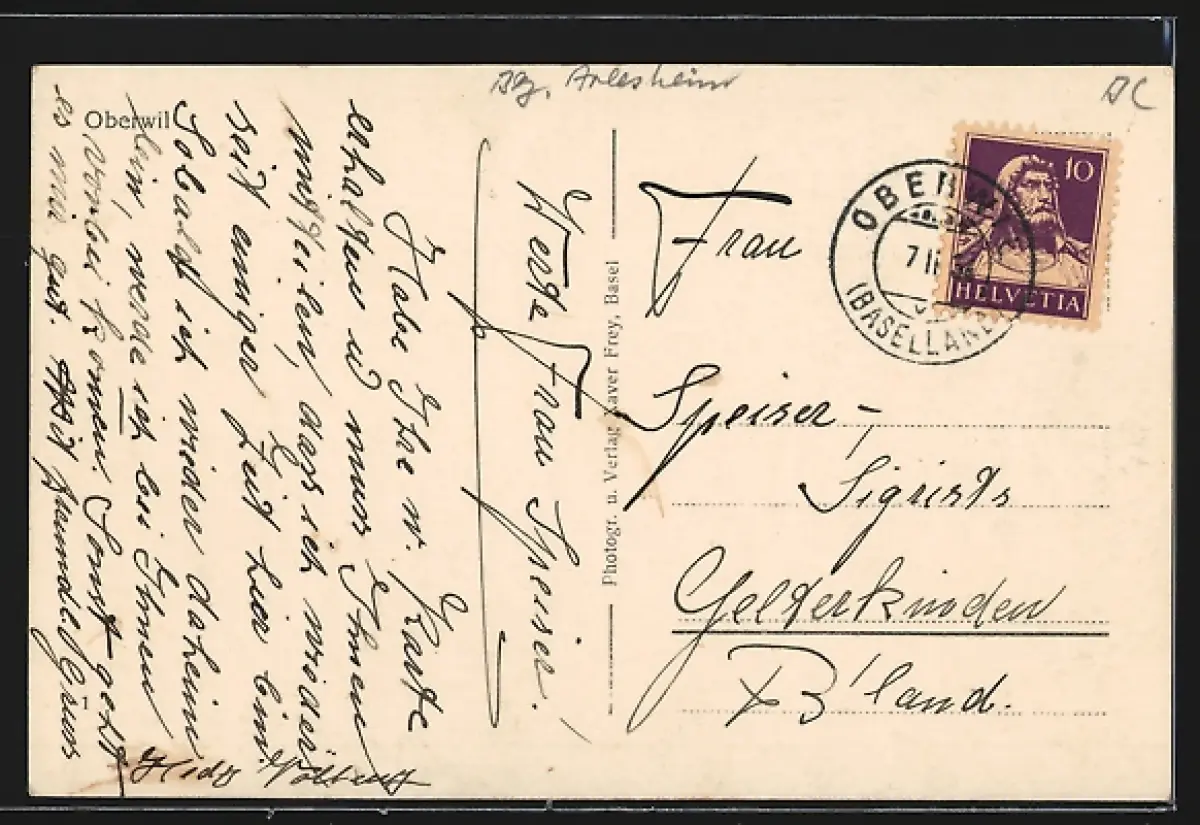 Bz. Arlesheim
BL
Oberwil
Werte Frau Speiser!
Habe Ihre w. Karte
erhalten u muss Ihnen
mitteilen, dass ich wieder
seit einiger Zeit hier bin.
Sobald ich wieder daheim
bin, werde ich bei Ihnen
vorbei kommen. Sonst geht
es mir gut. Mit freundl. Gruss
Photogr. u. Verlag Xaver Frey, Basel
10
HELVETIA
(BASELLAND)
Frau
Speiser-
Sigrists
Gelterkinden
B'land.
1